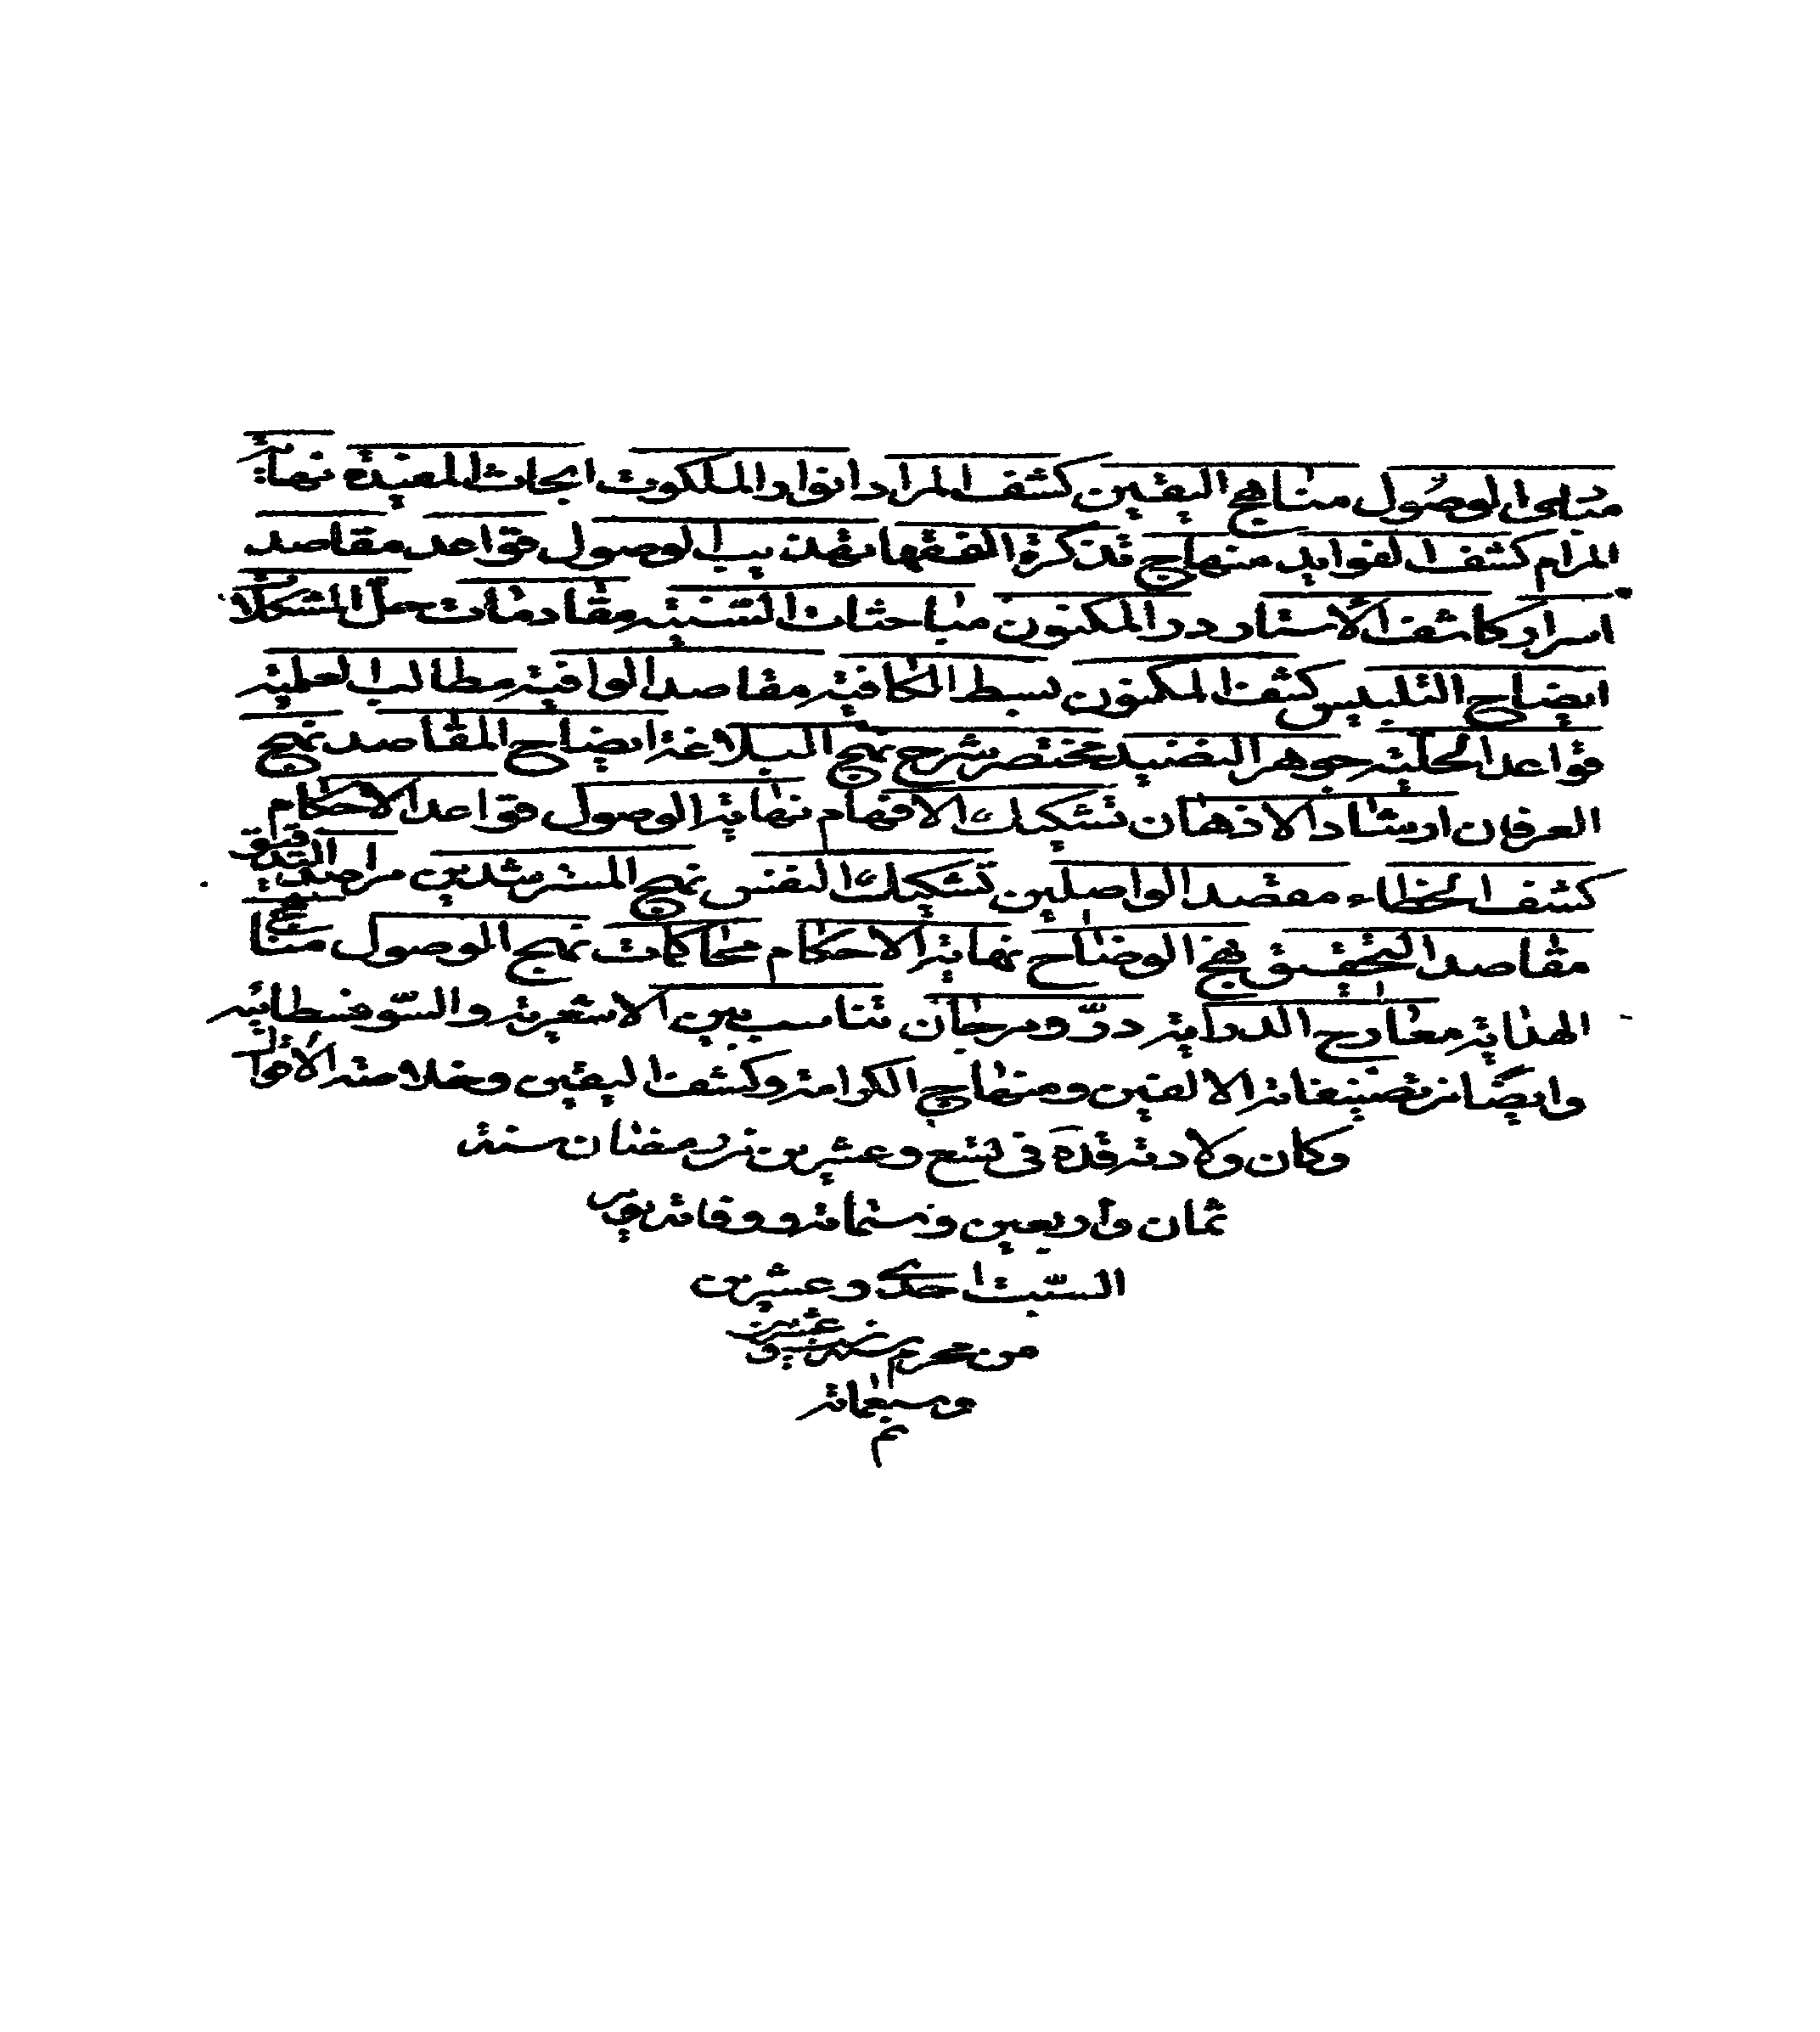 منتهى الوصول مناهج اليقين كشف المراد انوار الملكوت ابحاث المفيدة نهاية
المرام كشف الفوايد منهاج تذكرة الفقها تهذيب الوصول قواعد مقاصد
اسرار كاشف الأستار در المكنون مباحثات السنية مقاومات حل المشكلات
ايضاح التلبيس كشف المكنون بسط الكافية مقاصد الوافية مطالب العلية
قواعد الجلية جوهر النضيد مختصر شرح نهج البلاغة ايضاح المقاصد نهج
العرفان ارشاد الاذهان تشكيك الافهام نهاية الوصول قواعد الاحكام
كشف الخطاء مقصد الواصلين تشكيك النفس نهج المسترشدين مراصد التدقيق
مقاصد التحقيق نهج الوضاح نهاية الاحكام محاكات نهج الوصول منهاج
الهداية معارج الدراية درّ ومرجان تناسب بين الاشعرية والسّوفسطائيه
وايضا من تصنيفاته الالفين ومنهاج الكرامة وكشف اليقين وخلاصة الأقوال
وكان ولادته قده في تسع وعشرين من رمضان سنة
ثمان وأربعين وستمائة ووفاته يوم
السّبت احدى وعشرين
من محرم سنة ست وعشرين
وسبعمائة
تم